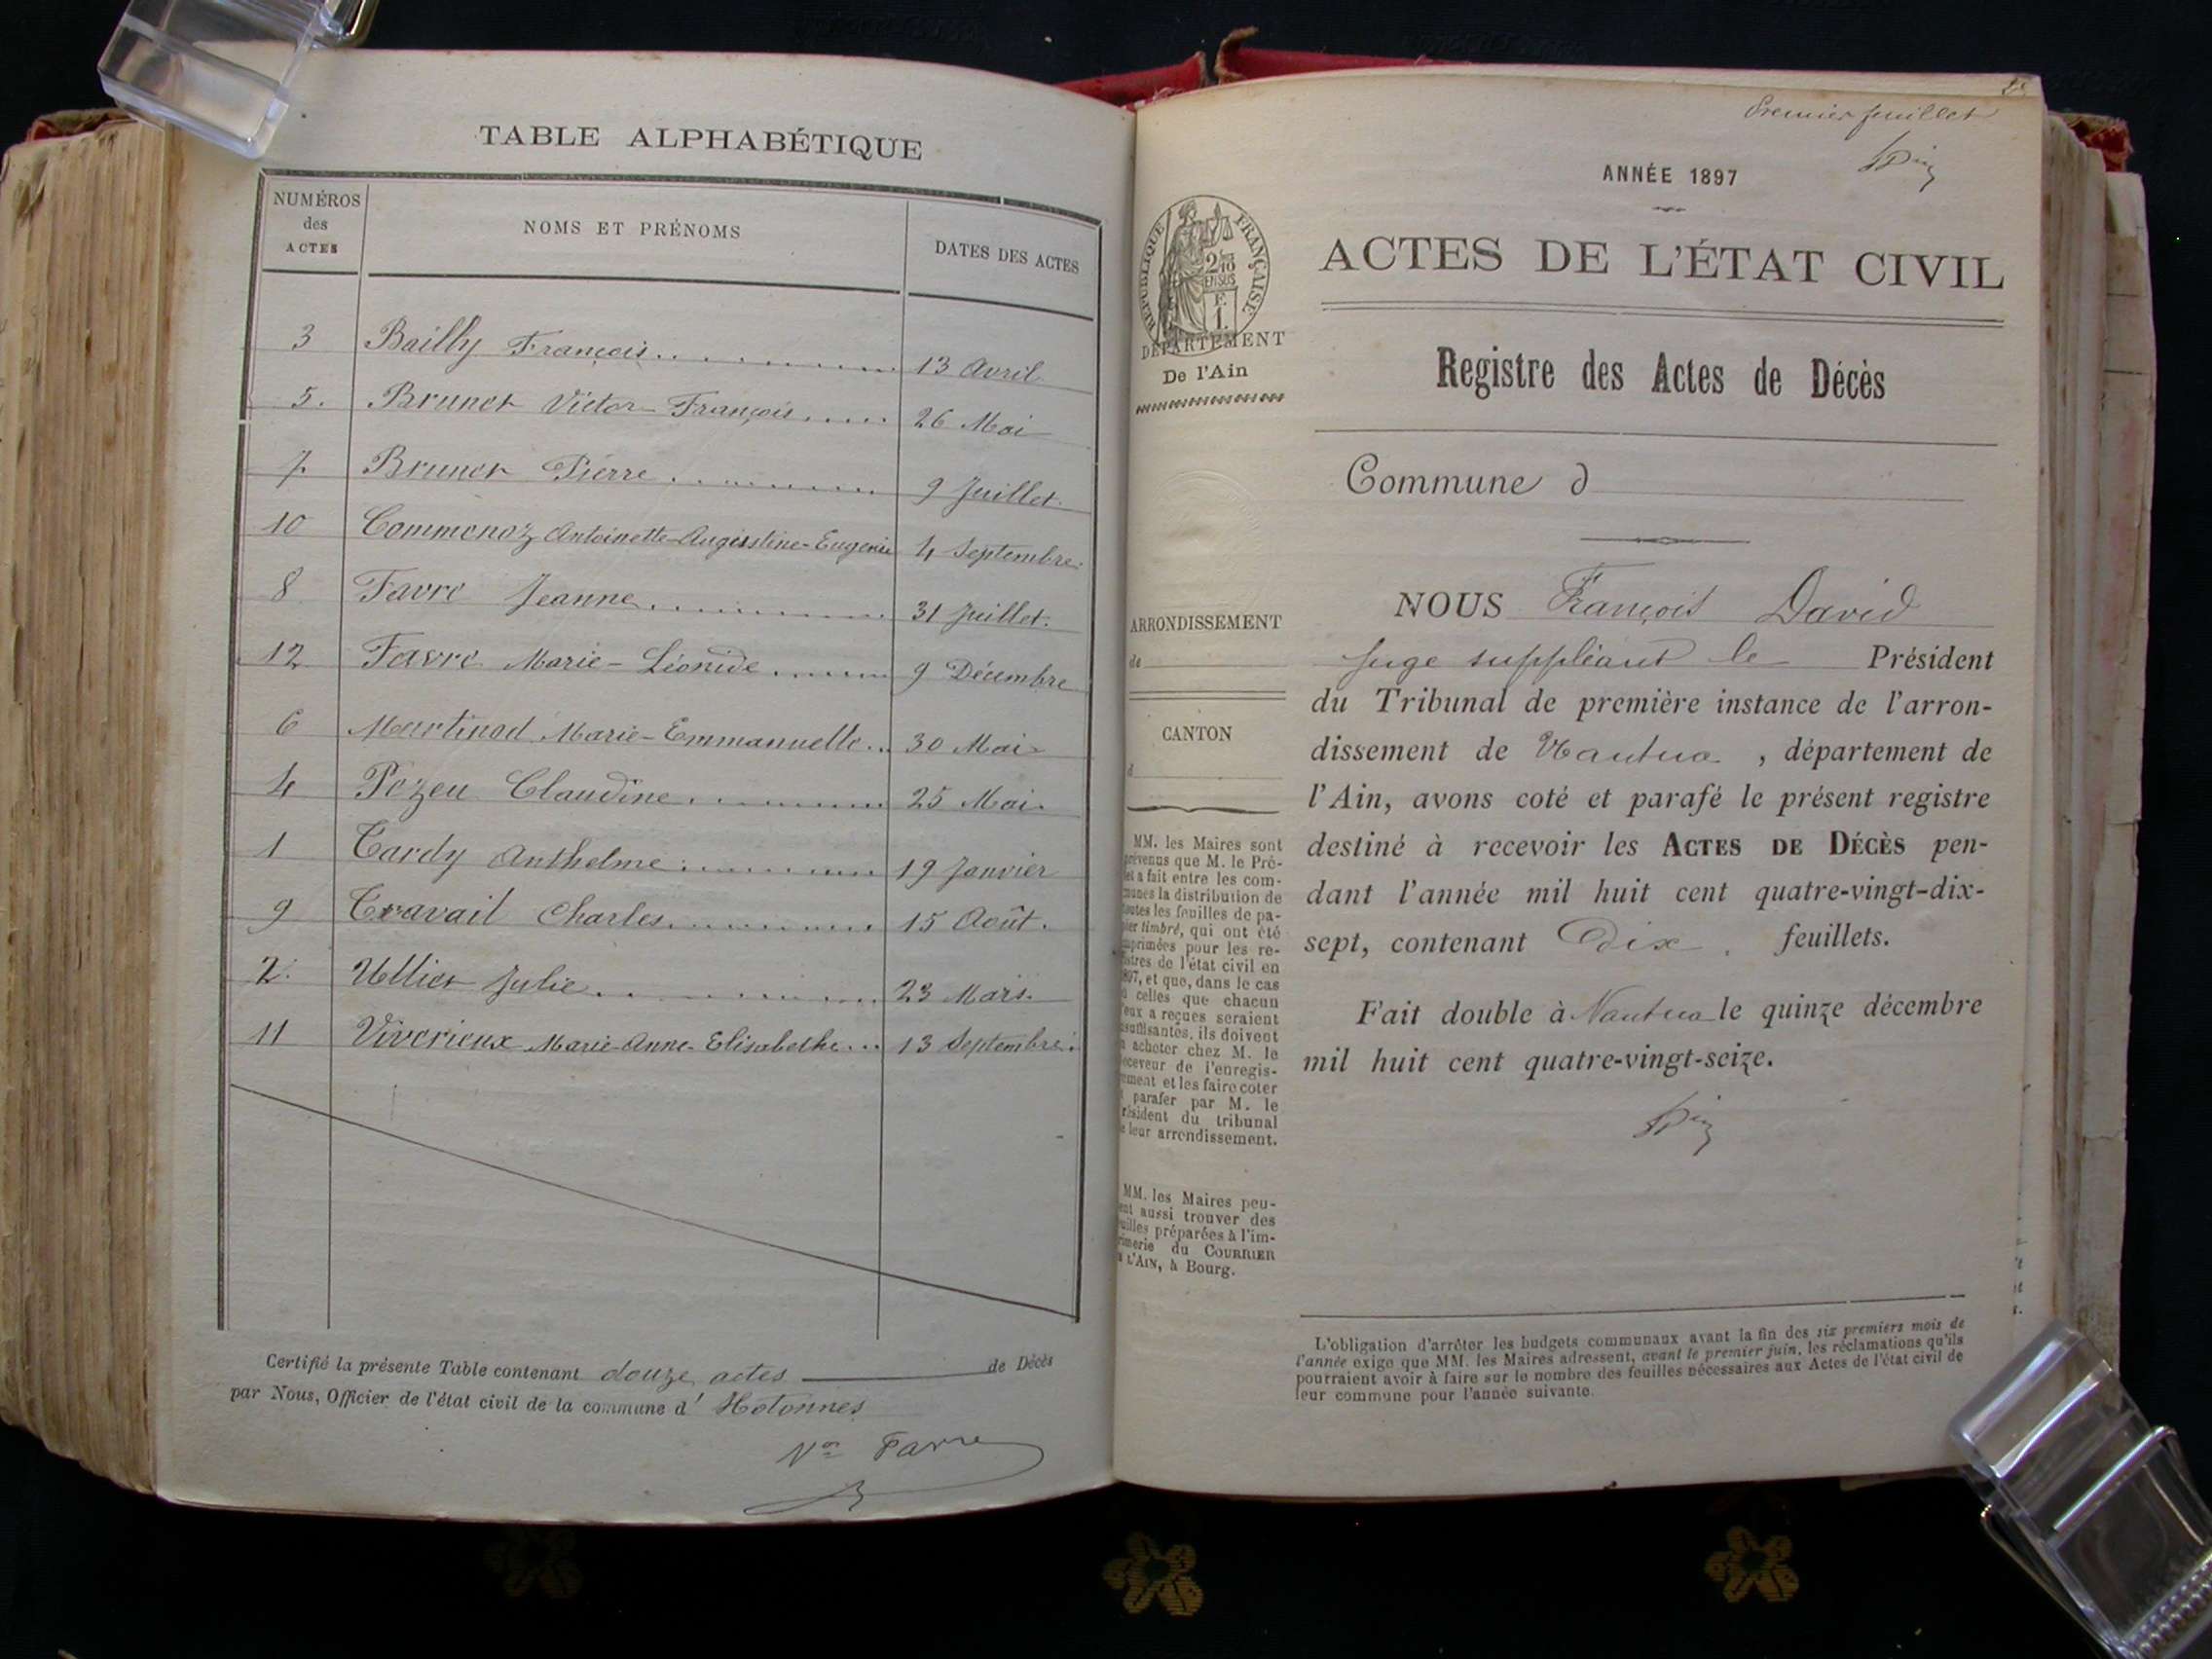 TABLE ALPHABÉTIQUE
NUMÉROS
des
ACTES
NOMS ET PRÉNOMS
DATES DES ACTES
3 Bailly François 13 Avril
5. Brunet Victor-François 26 Mai
7. Brunet Pierre 9 Juillet.
10 Commenoz Antoinette-Augustine-Eugenie 4 Septembre
8 Favre Jeanne 31 Juillet.
12 Favre Marie-Léonide 9 Décembre
6 Martinod Marie-Emmanuelle 30 Mai
4 Pozeu Claudine 25 Mai
1 Tardy Anthelme 19 Janvier
9 Travail Charles 15 Août.
2. Ulliet Julie 23 Mars.
11 Viverieux Marie-Anne-Elisabethe 13 Septembre.
Certifié la présente Table contenant douze actes de Décès
par Nous, Officier de l'état civil de la commune d' Hotonnes
Favre
Premier feuillet
ANNÉE 1897
RÉPUBLIQUE FRANÇAISE
ACTES DE L'ÉTAT CIVIL
DÉPARTEMENT
De l'Ain
Registre des Actes de Décès
Commune d
ARRONDISSEMENT
de
CANTON
d
MM. les Maires sont
prévenus que M. le Pré-
fet a fait entre les com-
munes la distribution de
toutes les feuilles de pa-
pier timbré, qui ont été
imprimées pour les re-
gistres de l'état civil en
1897, et que, dans le cas
où celles que chacun
d'eux a reçues seraient
insuffisantes, ils doivent
en acheter chez M. le
receveur de l'enregis-
trement et les faire coter
et parafer par M. le
président du tribunal
de leur arrondissement.
MM. les Maires peu-
vent aussi trouver des
feuilles préparées à l'im-
primerie du COURRIER
DE L'AIN, à Bourg.
NOUS François David
Juge suppléant le Président
du Tribunal de première instance de l'arron-
dissement de Nantua, département de
l'Ain, avons coté et parafé le présent registre
destiné à recevoir les ACTES DE DÉCÈS pen-
dant l'année mil huit cent quatre-vingt-dix-
sept, contenant Dix feuillets.
Fait double à Nantua le quinze décembre
mil huit cent quatre-vingt-seize.
L'obligation d'arrêter les budgets communaux avant la fin des six premiers mois de
l'année exige que MM. les Maires adressent, avant le premier juin, les réclamations qu'ils
pourraient avoir à faire sur le nombre des feuilles nécessaires aux Actes de l'état civil de
leur commune pour l'année suivante.